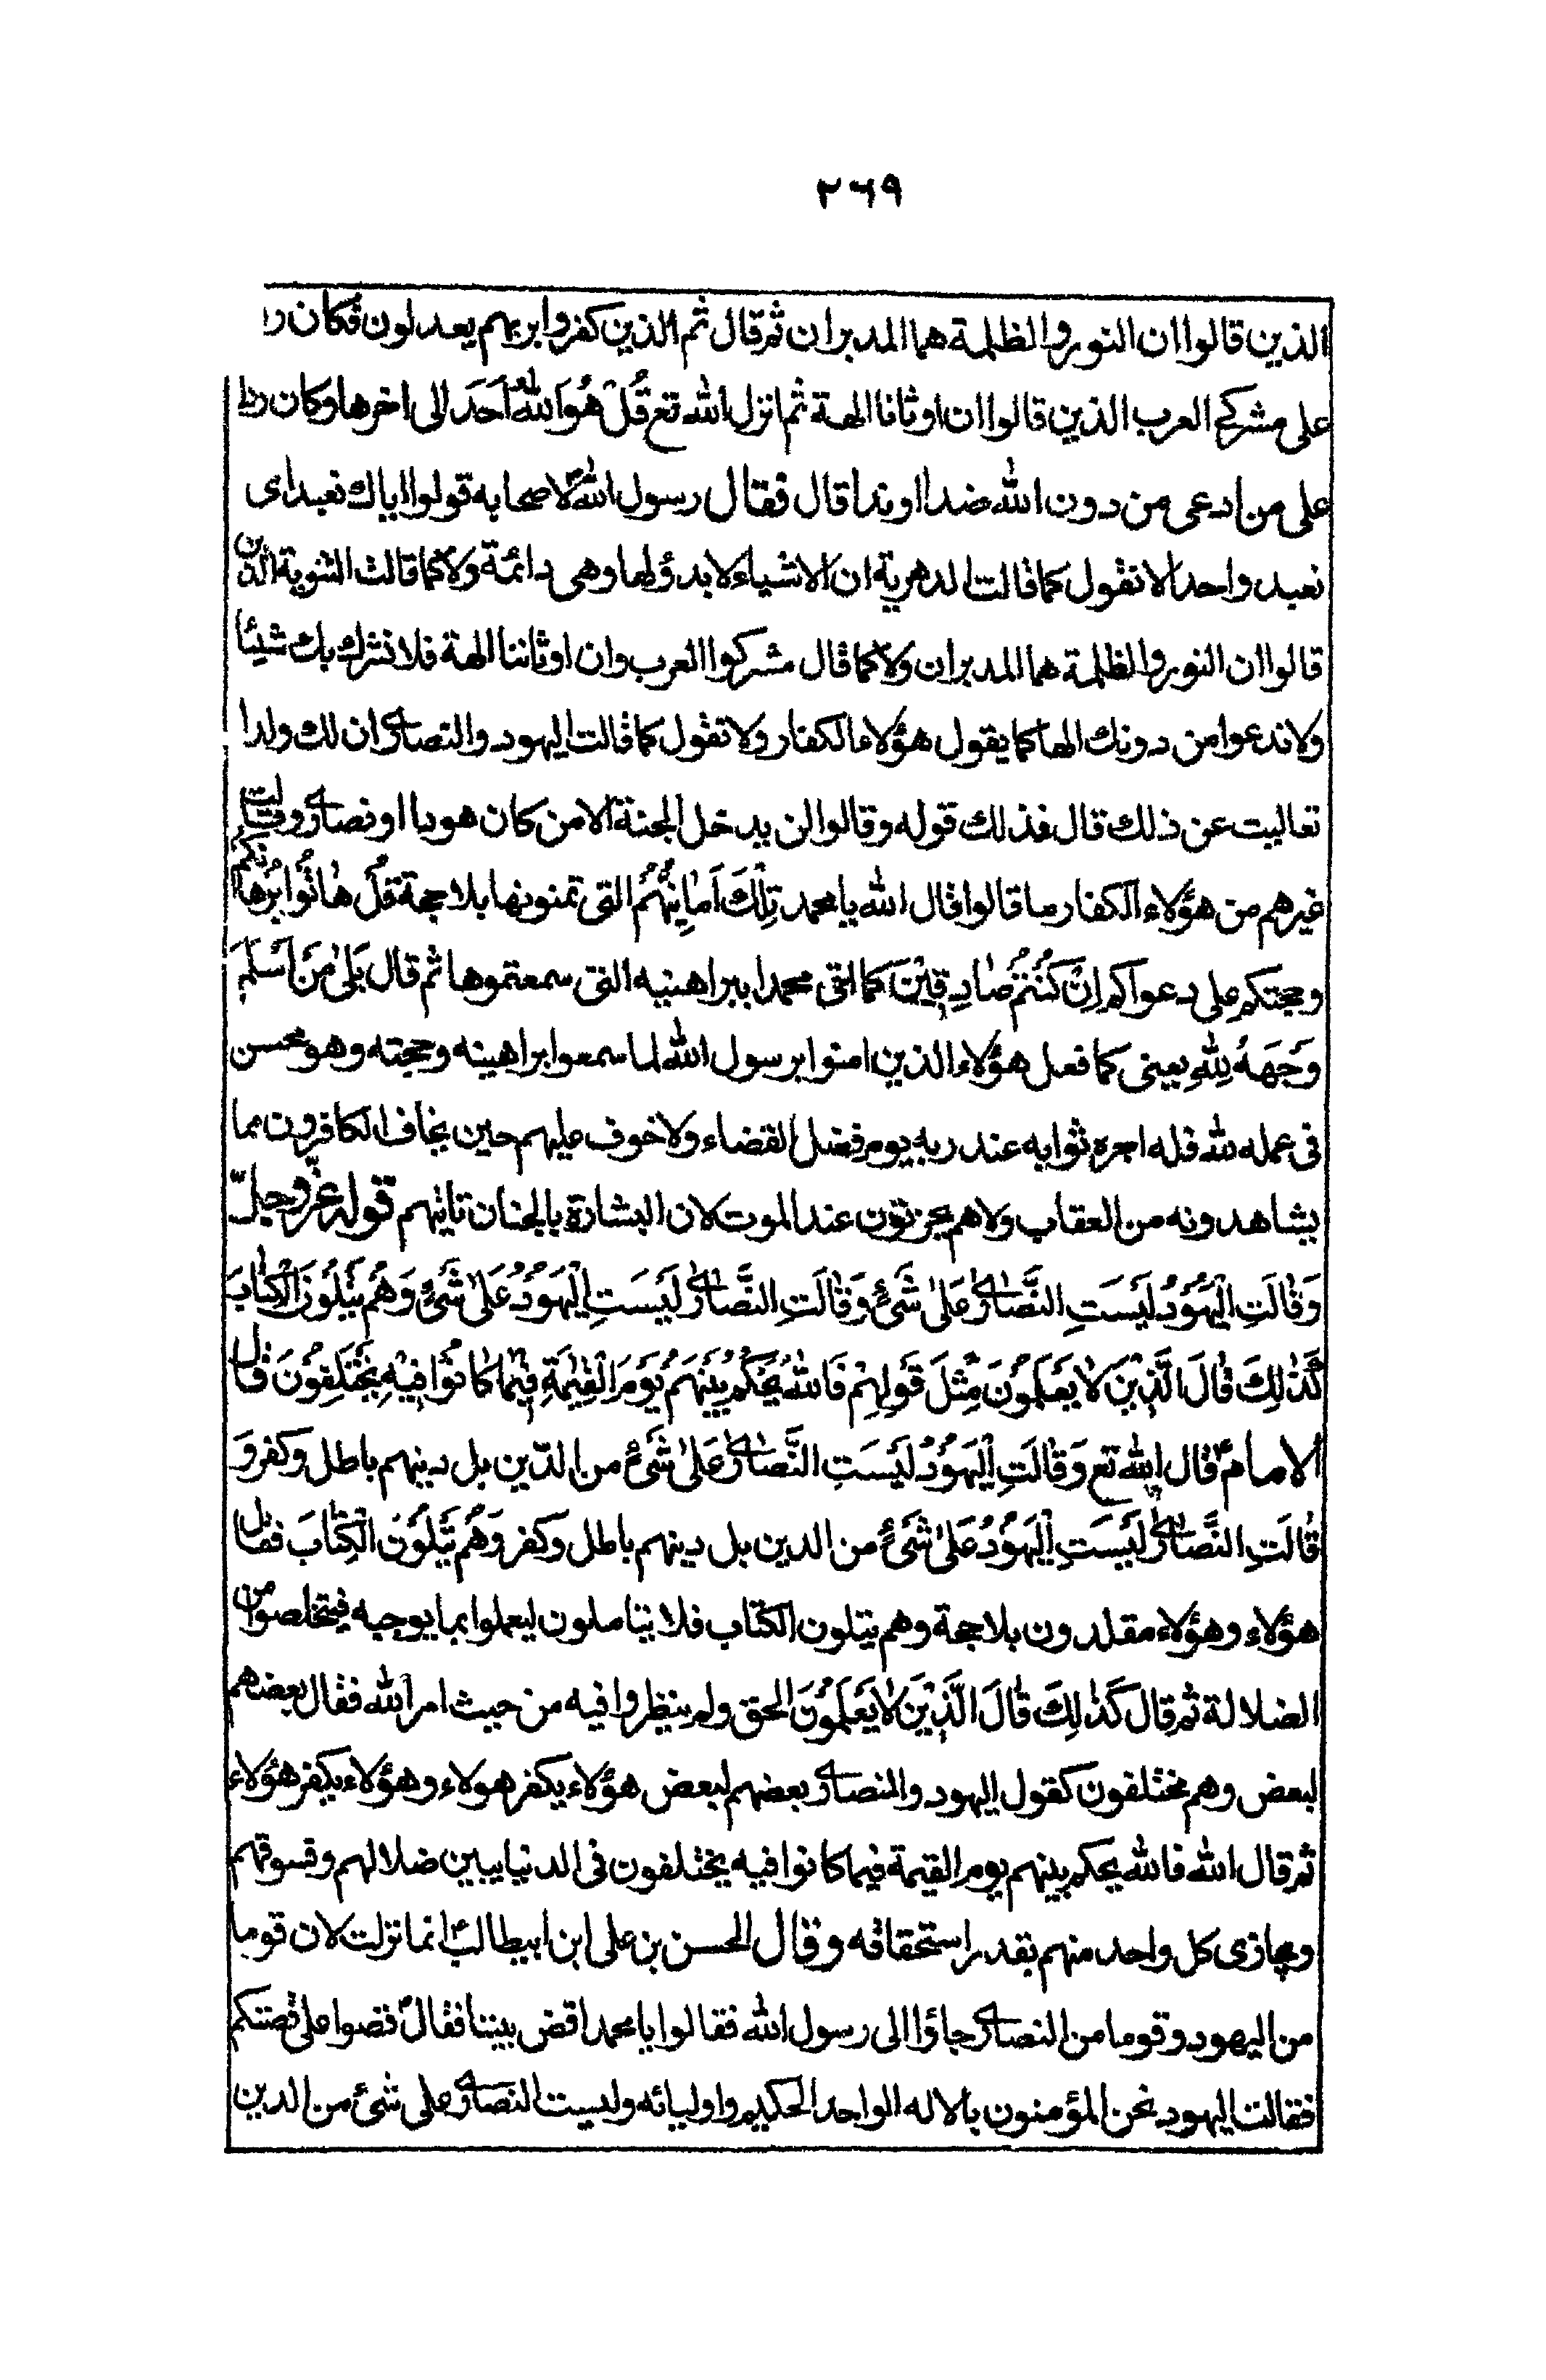 ٢٦٩
الذين قالوا ان النور والظلمة هما المدبران ثم قال ثم الذين كفروا بربهم يعدلون فكان ردا
على مشركي العرب الذين قالوا ان اوثانا الهة ثم انزل الله تع قُلْ هُوَ اللهُ اَحَد الى اخرها وكان ردا
على من ادعى من دون الله ضدا او ندا قال فقال رسول الله ص لاصحابه قولوا اياك نعبد اى
نعبد واحدا لا نقول كما قالت الدهرية ان الاشياء لا بدؤ لها وهى دائمة ولا كما قالت الثنوية الذين
قالوا ان النور والظلمة هما المدبران ولا كما قال مشركوا العرب وان اوثاننا الهة فلا نشرك بك شيئا
ولا ندعوا من دونك الها كما يقول هؤلاء الكفار ولا نقول كما قالت اليهود والنصارى ان لك ولدا
تعاليت عن ذلك قال فذلك قوله وقالوا لن يدخل الجنة الا من كان هودا او نصارى وقالت
غيرهم من هؤلاء الكفار ما قالوا قال الله يا محمد تِلْكَ اَمَانِيُّهُمْ التى تمنونها بلا حجة قُلْ هَاتُوا بُرْهَانَكُمْ
وحجتكم على دعواكم اِنْ كُنْتُمْ صَادِقِيْنَ كما اتى محمد ببراهنيه التى سمعتموها ثم قال بَلىٰ مَنْ اَسْلَمَ
وَجْهَهُ لِلّٰهِ يعنى كما فعل هؤلاء الذين امنوا برسول الله لما سمعوا براهينه وحجته وهو محسن
فى عمله لله فله اجره ثوابه عند ربه يوم فصل القضاء ولا خوف عليهم حين يخاف الكافرون مما
يشاهدونه من العقاب ولا هم يحزنون عند الموت لان البشارة بالجنان تاتيهم قوله عزّ وجلّ
وَقَالَتِ الْيَهُوْدُ لَيْسَتِ النَّصَارىٰ عَلىٰ شَىْءٍ وَقَالَتِ النَّصَارىٰ لَيْسَتِ الْيَهُوْدُ عَلىٰ شَىْءٍ وَهُمْ يَتْلُوْنَ الْكِتَابَ
كَذٰلِكَ قَالَ الَّذِيْنَ لَا يَعْلَمُوْنَ مِثْلَ قَوْلِهِمْ فَاللهُ يَحْكُمُ بَيْنَهُمْ يَوْمَ الْقِيٰمَةِ فِيْمَا كَانُوْا فِيْهِ يَخْتَلِفُوْنَ قال
الامام ع قال الله تع وَقَالَتِ الْيَهُوْدُ لَيْسَتِ النَّصَارىٰ عَلىٰ شَىْءٍ من الدّين بل دينهم باطل وكفر وَ
قَالَتِ النَّصَارىٰ لَيْسَتِ الْيَهُوْدُ عَلىٰ شَىْءٍ من الدين بل دينهم باطل وكفر وَهُمْ يَتْلُوْنَ الْكِتَابَ فقال
هؤلاء وهؤلاء مقلدون بلا حجة وهم يتلون الكتاب فلا يتاملون ليعملوا بما يوجبه فيتخلصوا من
الضلالة ثم قال كَذٰلِكَ قَالَ الَّذِيْنَ لَا يَعْلَمُوْنَ الحق ولم ينظروا فيه من حيث امر الله فقال بعضهم
لبعض وهم مختلفون كقول اليهود والنصارى بعضهم لبعض هؤلاء يكفر هولاء وهؤلاء يكفر هؤلاء
ثم قال الله فالله يحكم بينهم يوم القيمة فيما كانوا فيه يختلفون فى الدنيا يبين ضلالهم وفسوقهم
ويجازى كل واحد منهم بقدر استحقاقه وقال الحسن بن على ابن ابيطالب ع انما نزلت لان قوما
من اليهود وقوما من النصارى جاؤا الى رسول الله فقالوا يا محمد اقض بيننا فقال ص قصوا على قصتكم
فقالت اليهود نحن المؤمنون بالاله الواحد الحكيم واوليائه وليست النصارى على شىء من الدين